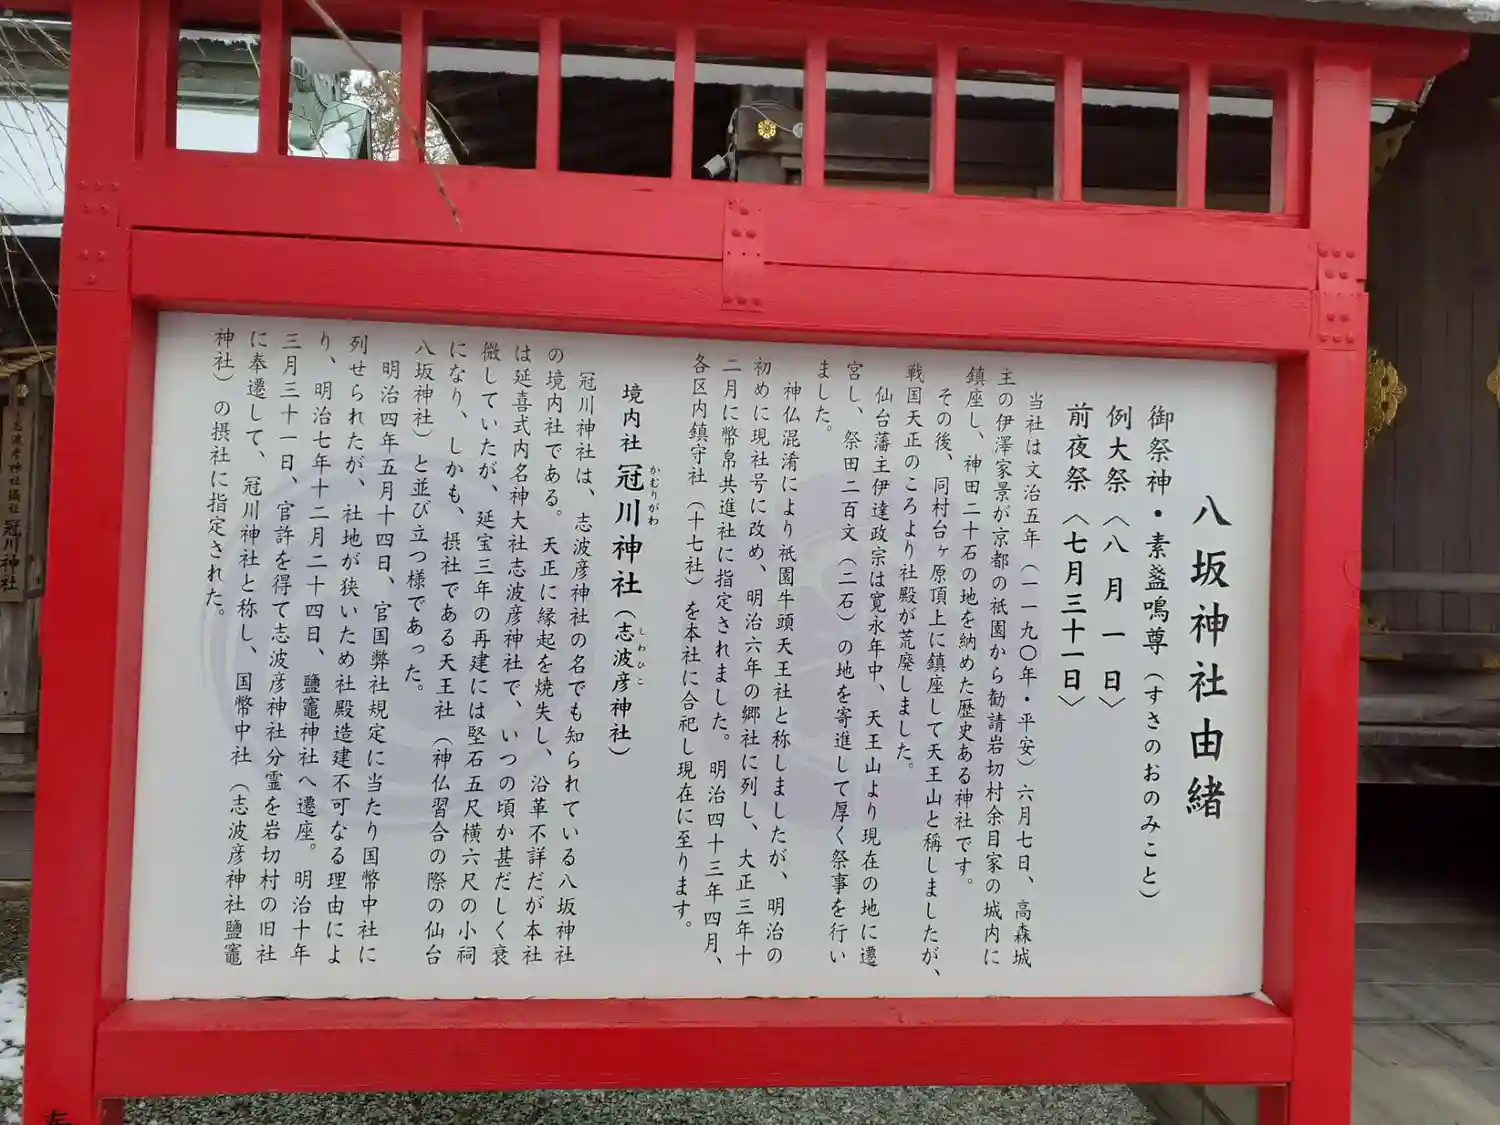 八坂神社由緒
御祭神・素盞鳴尊（すさのおのみこと）
例大祭〈八月一日〉
前夜祭〈七月三十一日〉
当社は文治五年（一一九〇年・平安）六月七日、高森城
主の伊澤家景が京都の祇園から勧請岩切村余目家の城内に
鎮座し、神田二十石の地を納めた歴史ある神社です。
その後、同村台ヶ原頂上に鎮座して天王山と稱しましたが、
戦国天正のころより社殿が荒廃しました。
仙台藩主伊達政宗は寛永年中、天王山より現在の地に遷
宮し、祭田二百文（二石）の地を寄進して厚く祭事を行い
ました。
神仏混淆により祇園牛頭天王社と称しましたが、明治の
初めに現社号に改め、明治六年の郷社に列し、大正三年十
二月に幣帛共進社に指定されました。明治四十三年四月、
各区内鎮守社（十七社）を本社に合祀し現在に至ります。
境内社 冠川神社（志波彦神社）
かむりがわ
しわひこ
冠川神社は、志波彦神社の名でも知られている八坂神社
の境内社である。天正に縁起を焼失し、沿革不詳だが本社
は延喜式内名神大社志波彦神社で、いつの頃か甚だしく衰
微していたが、延宝三年の再建には堅石五尺横六尺の小祠
になり、しかも、摂社である天王社（神仏習合の際の仙台
八坂神社）と並び立つ様であった。
明治四年五月十四日、官国弊社規定に当たり国幣中社に
列せられたが、社地が狭いため社殿造建不可なる理由によ
り、明治七年十二月二十四日、鹽竈神社へ遷座。明治十年
三月三十一日、官許を得て志波彦神社分霊を岩切村の旧社
に奉遷して、冠川神社と称し、国幣中社（志波彦神社鹽竈
神社）の摂社に指定された。
志波彦神社攝社 冠川神社
奉